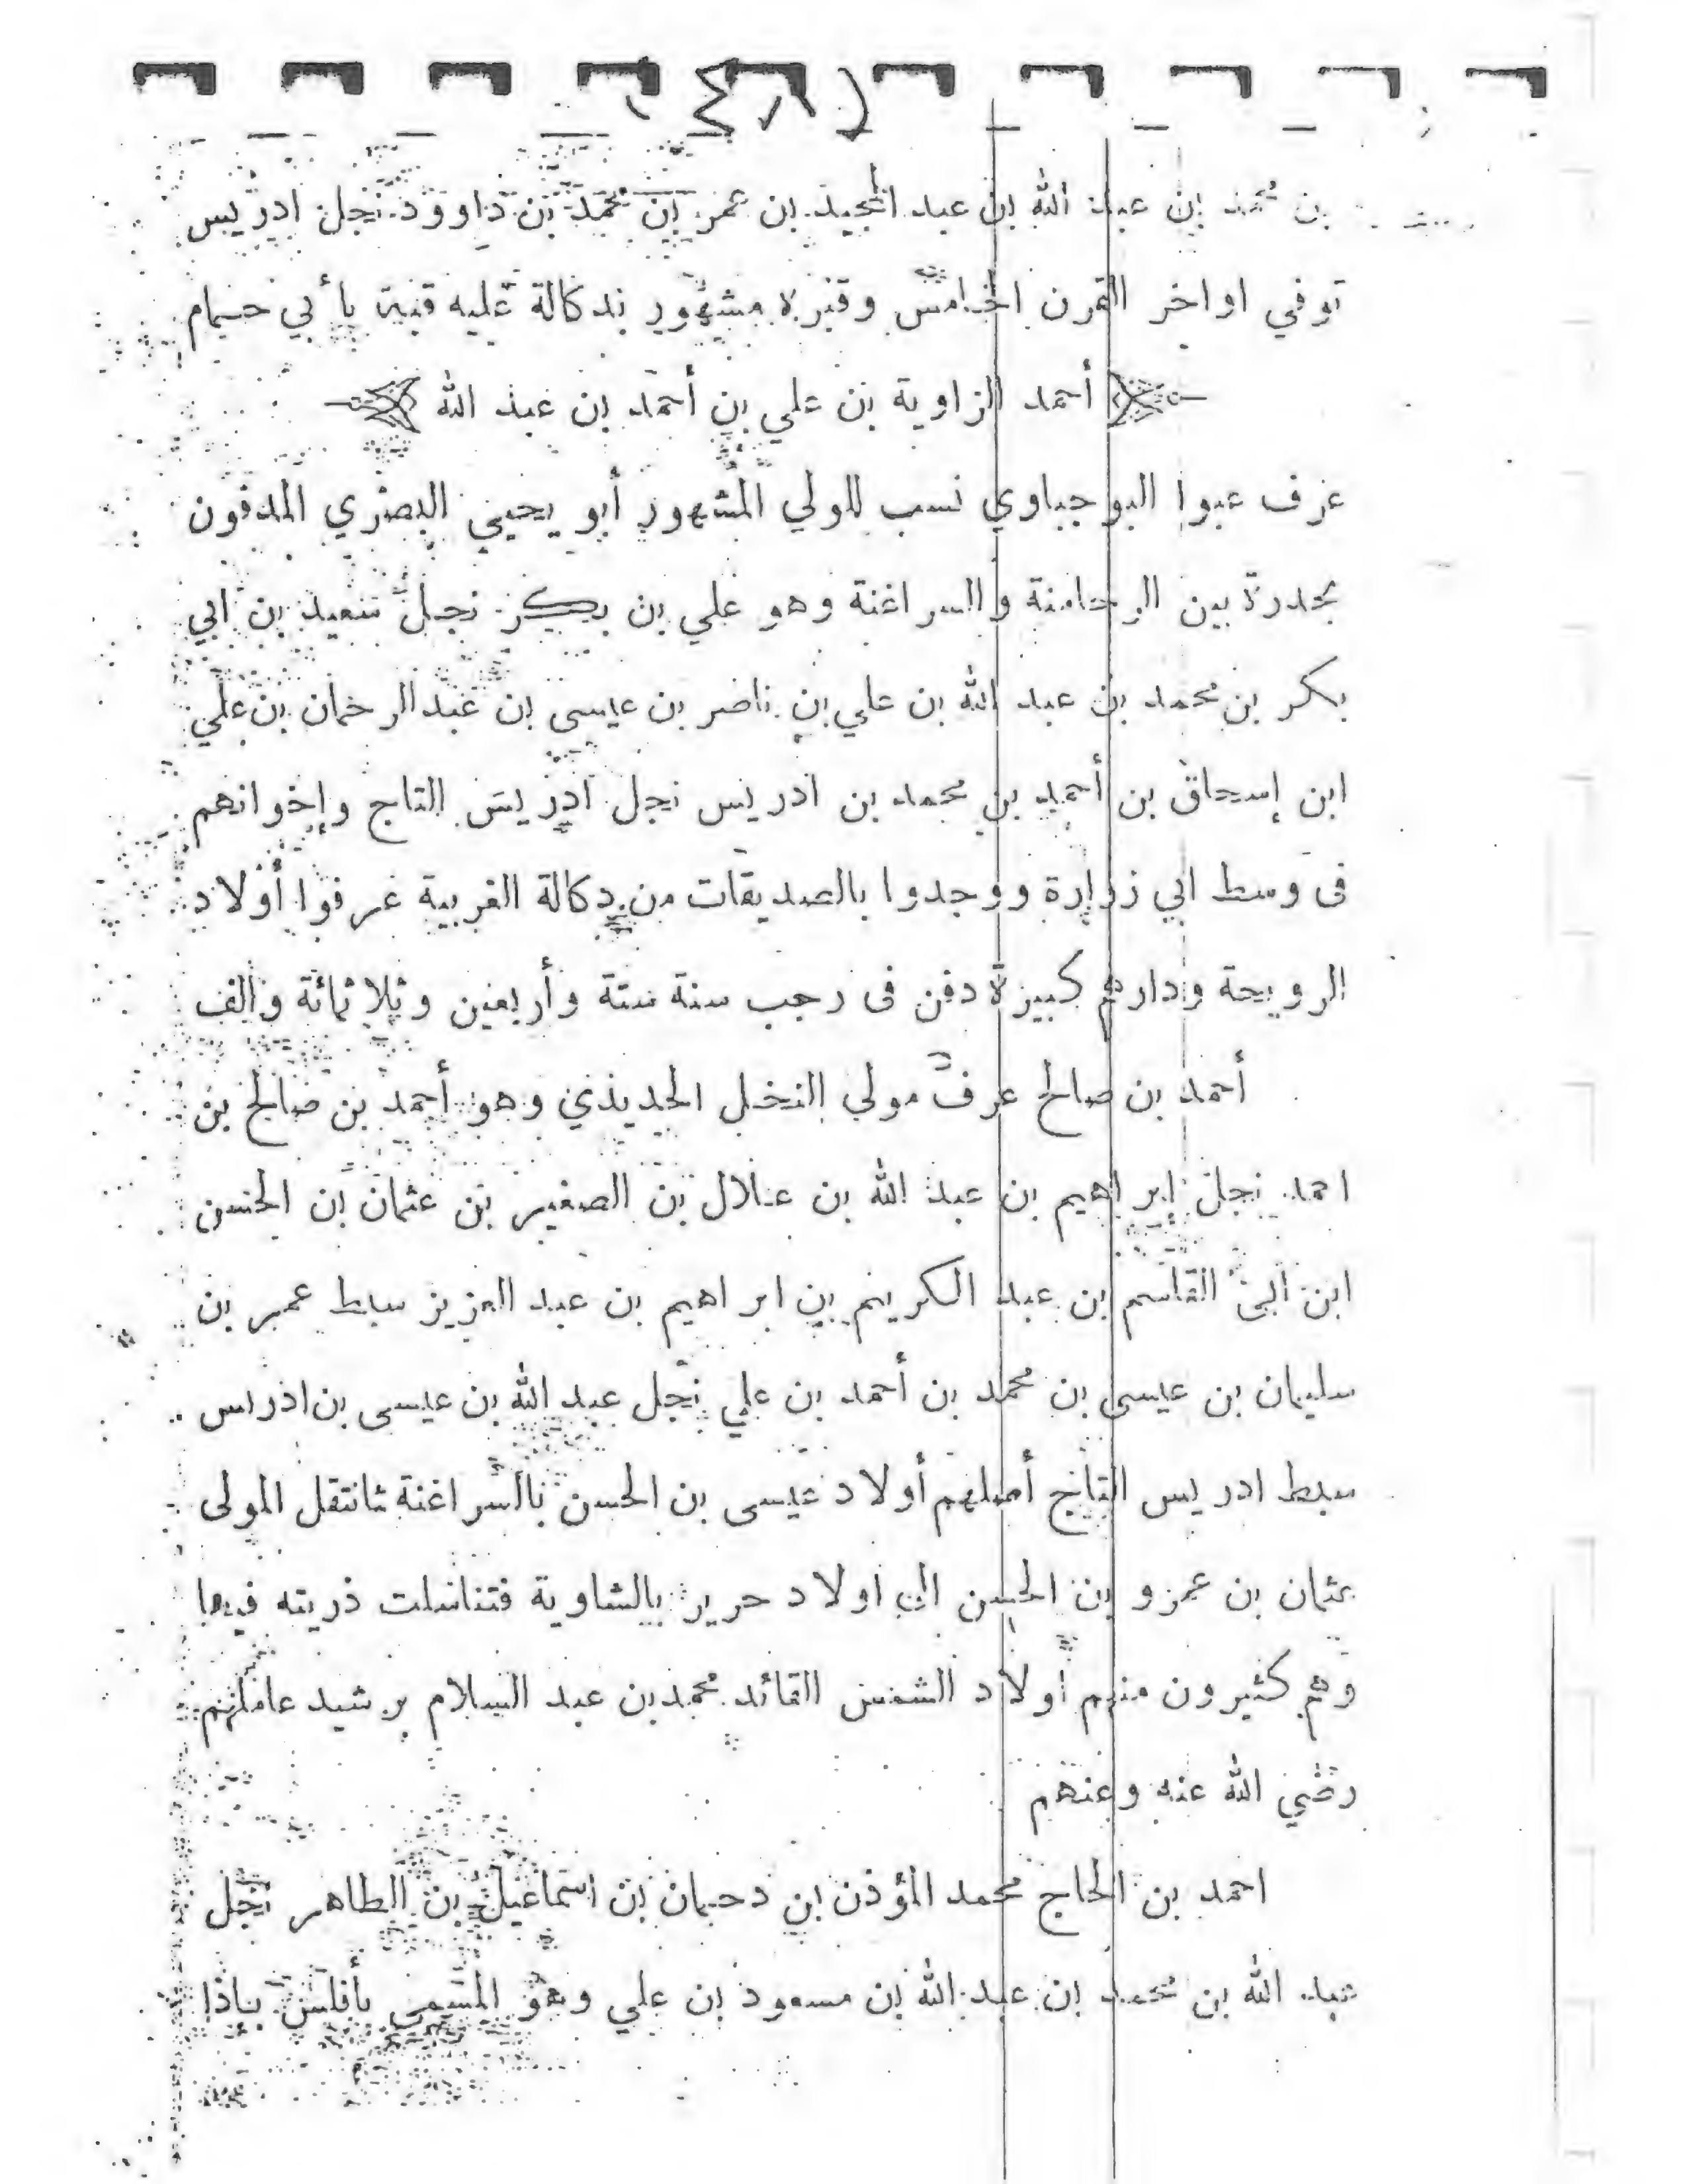 بن محمد بن عبد الله بن عبد المجيد بن عمر بن محمد بن داوود نجل ادريس
توفي اواخر القرن الخامس وقبره مشهور بدكالة عليه قبة بأبي حمام
أحمد الزاوية بن علي بن أحمد بن عبد الله
عرف عبوا البوجباوي نسب للولي المشهور أبو يحيى البصري المدفون
بجدرة بين الرحامنة والسراغنة وهو علي بن بكر نجل سعيد بن ابي
بكر بن محمد بن عبد الله بن علي بن ناصر بن عيسى بن عبد الرحمان بن علي
ابن إسحاق بن أحمد بن محمد بن ادريس نجل ادريس التاج وإخوانهم
فى وسط ابي زرارة ووجدوا بالصديقات من دكالة الغربية عرفوا أولاد
الرويحة ودارهم كبيرة دفن فى رجب سنة ستة وأربعين وثلاثمائة والف
أحمد بن صالح عرف مولي النخل الحديذي وهو أحمد بن صالح بن
احمد نجل إبراهيم بن عبد الله بن علال بن الصغير بن عثمان بن الحسن
ابن ابى القاسم بن عبد الكريم بن ابراهيم بن عبد العزيز سبط عمر بن
سليمان بن عيسى بن محمد بن أحمد بن علي نجل عبد الله بن عيسى بن ادراس
سبط ادريس التاج أصلهم أولاد عيسى بن الحسن بالسراغنة فانتقل المولى
عثمان بن عمرو بن الحسن الى اولاد حرير بالشاوية فتناسلت ذريته فيها
وهم كثيرون منهم أولاد الشمس القائد محمد بن عبد السلام برشيد عاملهم
رضي الله عنه وعنهم
احمد بن الحاج محمد المؤذن ابن دحمان بن اسماعيل بن الطاهر نجل
عبد الله بن محمد بن عبد الله بن مسعود بن علي وهو المسمى بأفلس بإذا